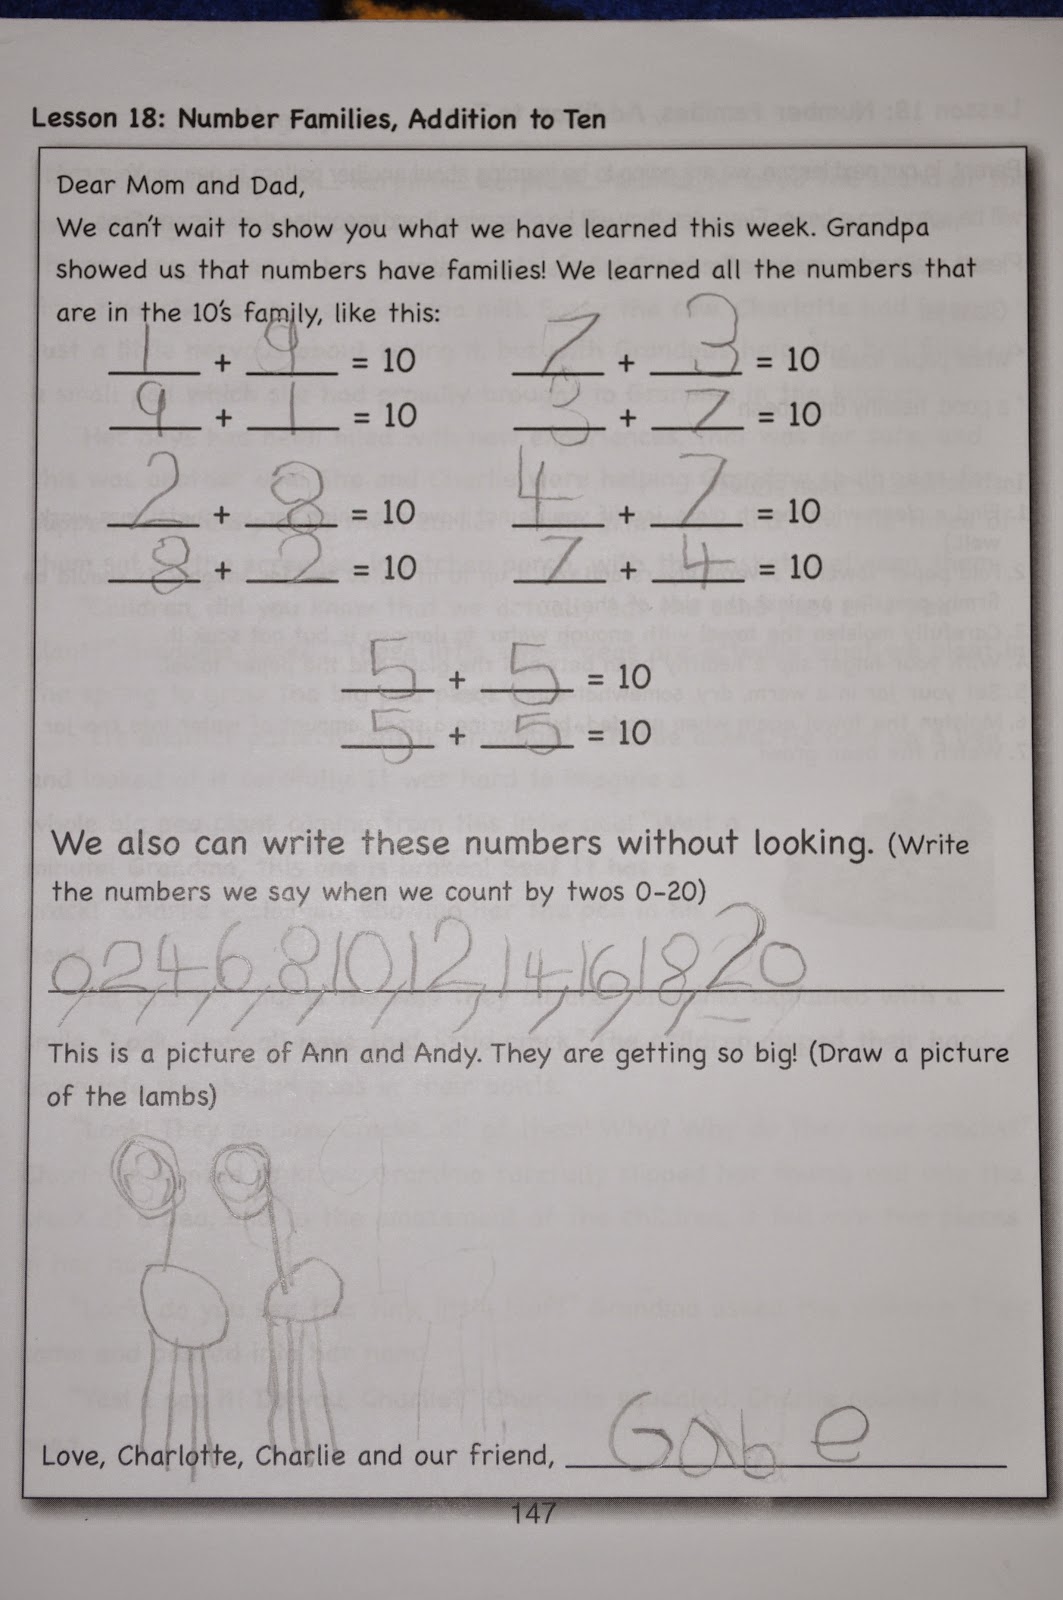 Lesson 18: Number Families, Addition to Ten
Dear Mom and Dad,
We can't wait to show you what we have learned this week. Grandpa
showed us that numbers have families! We learned all the numbers that
are in the 10's family, like this:
1 + 9 = 10 7 + 3 = 10
9 + 1 = 10 3 + 7 = 10
2 + 8 = 10 4 + 7 = 10
8 + 2 = 10 7 + 4 = 10
5 + 5 = 10
5 + 5 = 10
We also can write these numbers without looking. (Write
the numbers we say when we count by twos 0-20)
0,2,4,6,8,10,12,14,16,18,20
This is a picture of Ann and Andy. They are getting so big! (Draw a picture
of the lambs)
Love, Charlotte, Charlie and our friend, Gabe
147